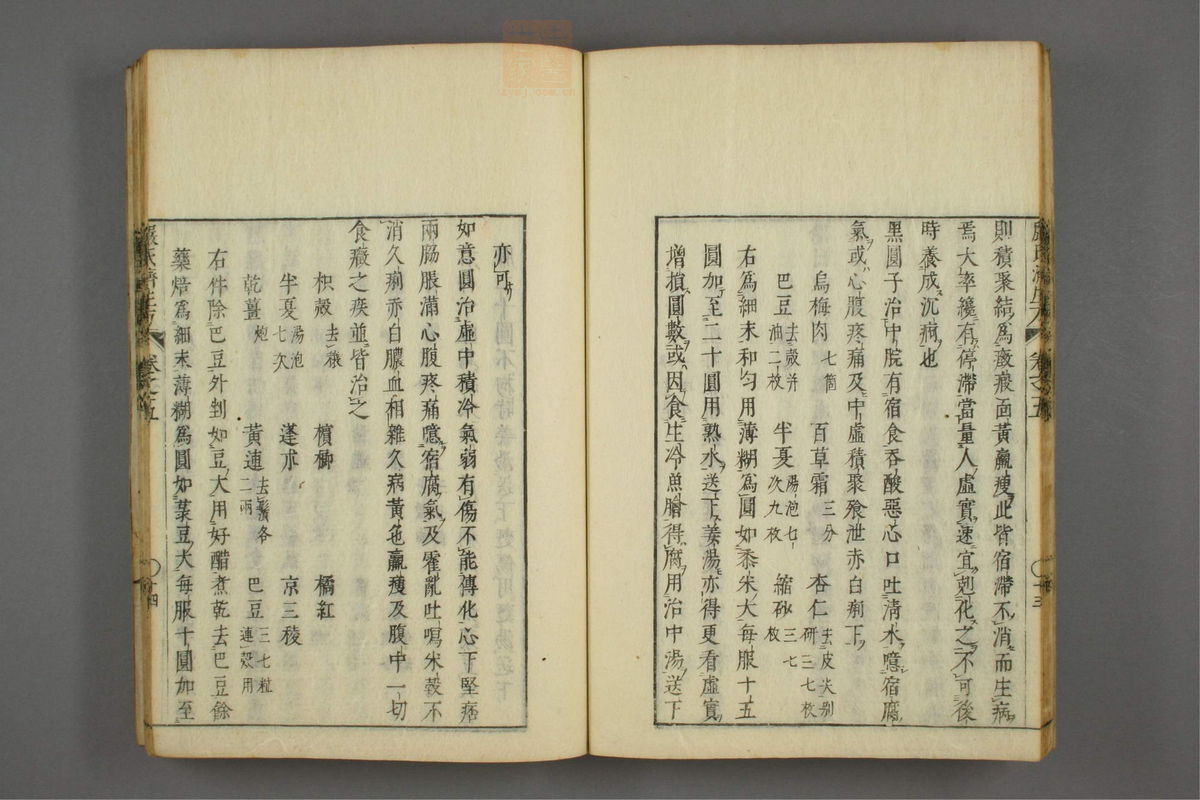 則積聚結爲癥瘕面黃羸瘦此皆宿滯不消而生病
焉大率纔有停滯當量人虛實速宜剋化之不可後
時養成沉痾也
黑圓子治中脘有宿食吞酸惡心口吐清水噫宿腐
氣或心腹疼痛及中虛積聚飱泄赤白痢下
烏梅肉七箇 百草霜三分 杏仁去皮尖别研三七枚
巴豆去殼并油二枚 半夏湯泡七次九枚 縮砂三七枚
右爲細末和勻用薄糊爲圓如黍米大每服十五
圓加至二十圓用熟水送下姜湯亦得更看虛實
增損圓數或因食生冷魚膾得腐用治中湯送下
嚴氏濟生方 卷之五 十三
亦可
如意圓治虛中積冷氣弱有傷不能傳化心下堅痞
兩脇脹滿心腹疼痛噫宿腐氣及霍亂吐瀉米穀不
消久痢赤白膿血相雜久病黃色羸瘦及腹中一切
食癥之疾並皆治之
枳殼去穰 檳榔 橘紅
半夏湯泡七次 蓬朮 京三稜
乾薑炮 黃連去鬚各二兩 巴豆三七粒連殼用
右件除巴豆外剉如豆大用好醋煮乾去巴豆餘
藥焙爲細末薄糊爲圓如菉豆大每服十圓加至
嚴氏濟生方 卷之五 十四